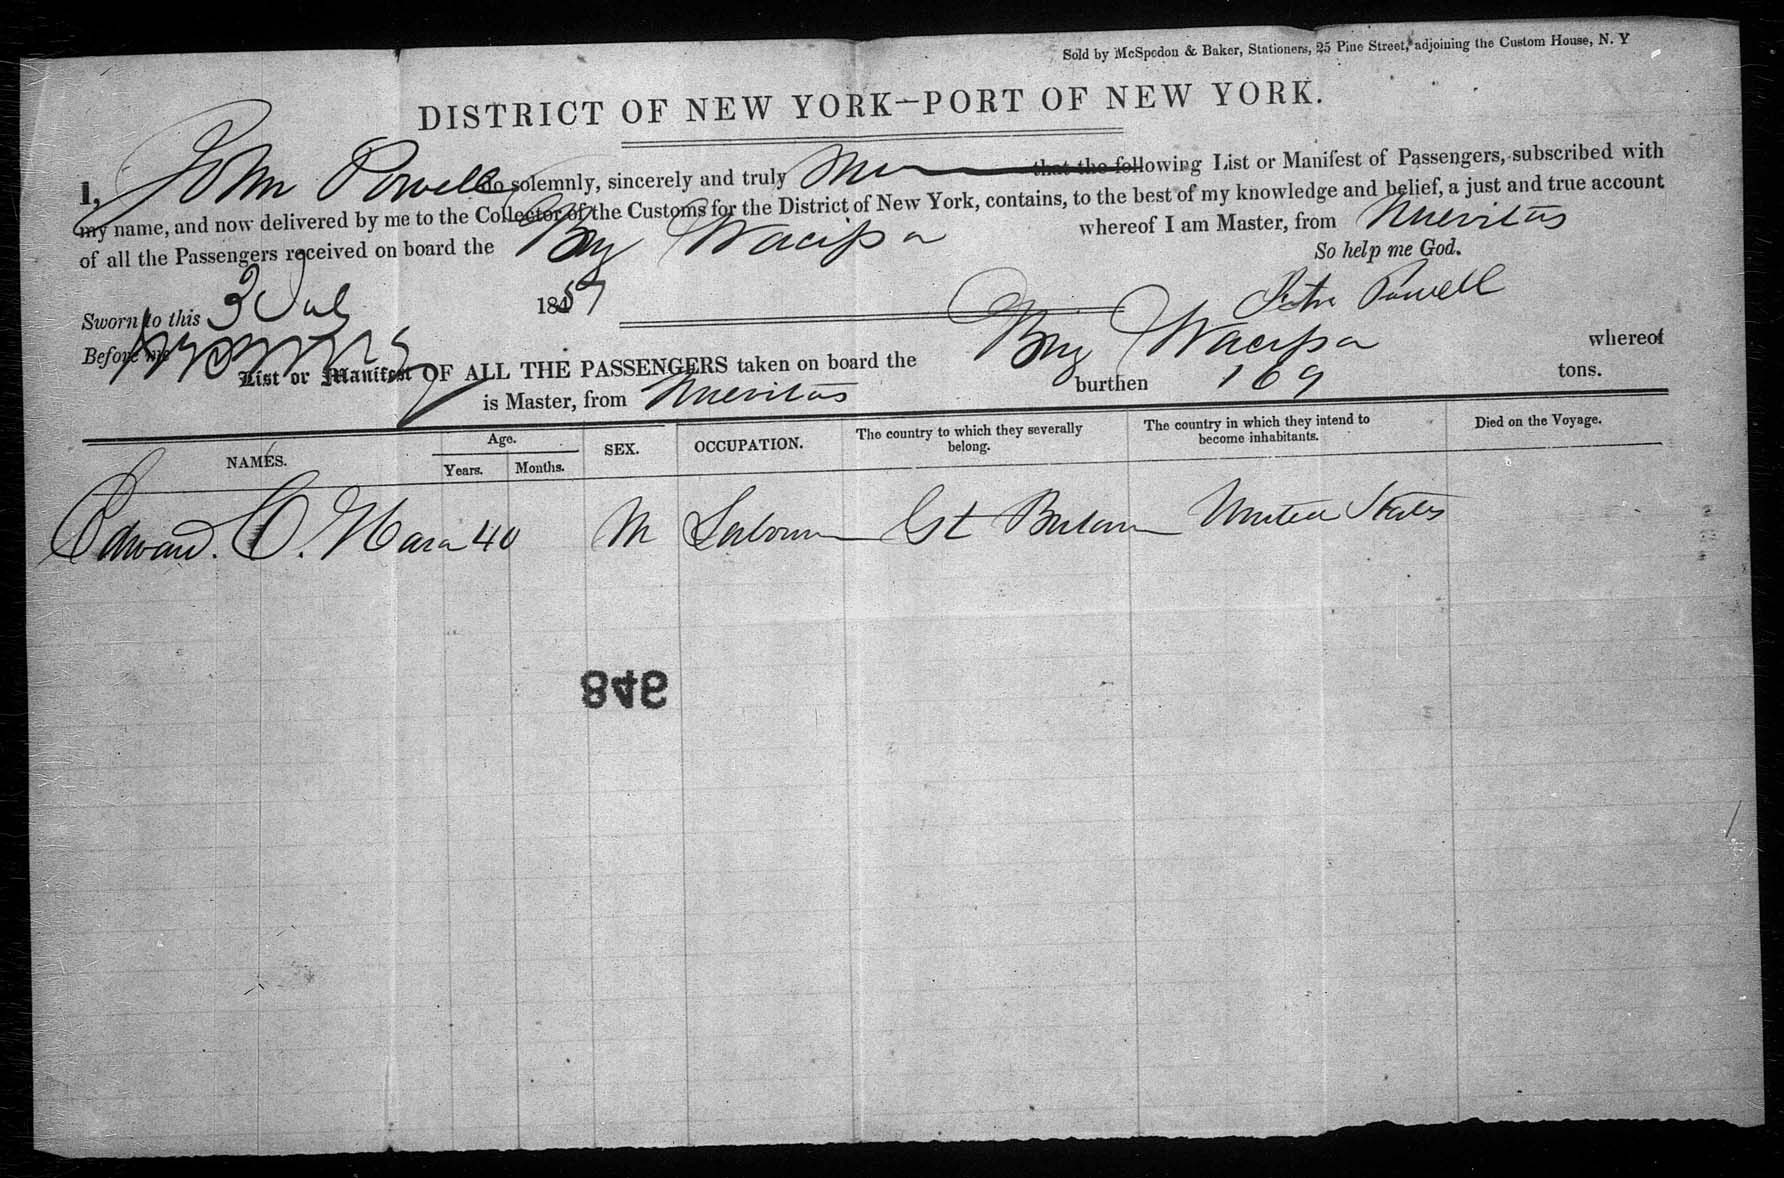 Sold by McSpedon & Baker, Stationers, 25 Pine Street, adjoining the Custom House, N. Y
DISTRICT OF NEW YORK—PORT OF NEW YORK.
I, John Powell do solemnly, sincerely and truly that the following List or Manifest of Passengers, subscribed with
my name, and now delivered by me to the Collector of the Customs for the District of New York, contains, to the best of my knowledge and belief, a just and true account
of all the Passengers received on board the Brig whereof I am Master, from Nuevitas
So help me God.
Sworn to this 3 July 1857
John Powell
Before me
List or Manifest OF ALL THE PASSENGERS taken on board the Brig whereof
is Master, from Nuevitas burthen 169 tons.
NAMES. Age. Years. Months. SEX. OCCUPATION. The country to which they severally belong. The country in which they intend to become inhabitants. Died on the Voyage.
Edward O. Hara 40 M Laborer Gt Britain United States
846